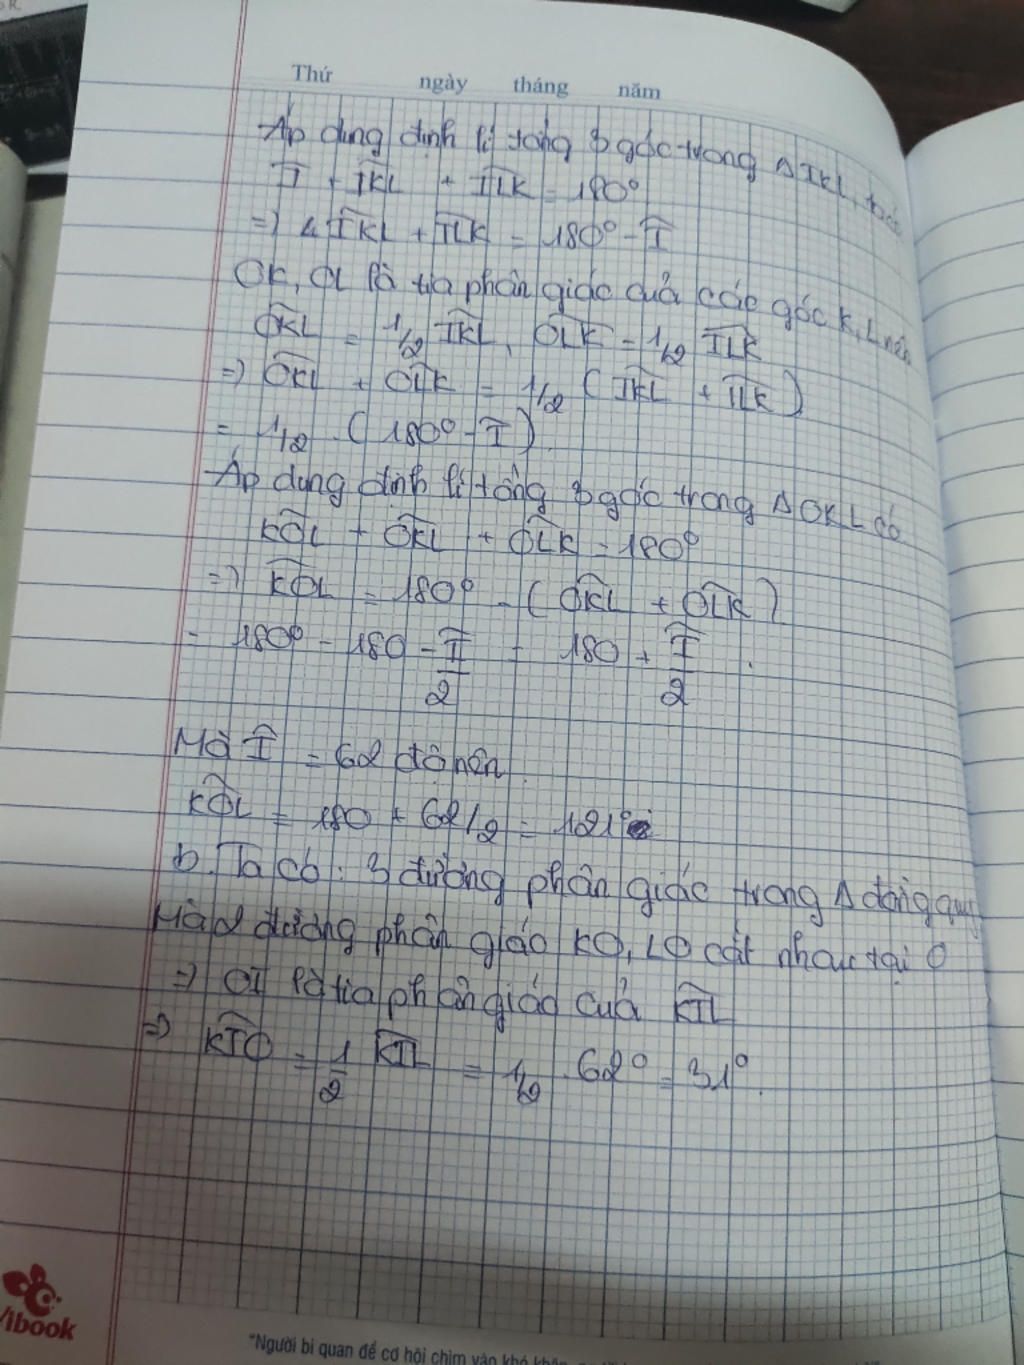 Thứ ngày tháng năm
Áp dụng định lí tổng 3 góc trong Δ IKL, ta có
Î + IKL + ILK = 180°
=> IKL + ILK = 180° - Î
OK, OL là tia phân giác của các góc K, L nên
OKL = 1/2 IKL, OLK = 1/2 ILK
=> OKL + OLK = 1/2 (IKL + ILK)
= 1/2 . (180° - Î)
Áp dụng định lí tổng 3 góc trong Δ OKL có
KOL + OKL + OLK = 180°
=> KOL = 180° - (OKL + OLK)
= 180° - 180 - Î/2 = 180 + Î/2 .
Mà Î = 62 độ nên
KOL = 180 + 62/2 = 121°
b. Ta có: 3 đường phân giác trong Δ đồng quy
Mà 2 đường phân giác KO, LO cắt nhau tại O
=> OI là tia phân giác của KIL
=> KIO = 1/2 KIL = 1/2 . 62° = 31°.
Vibook
"Người bi quan để cơ hội chìm vào khó khăn